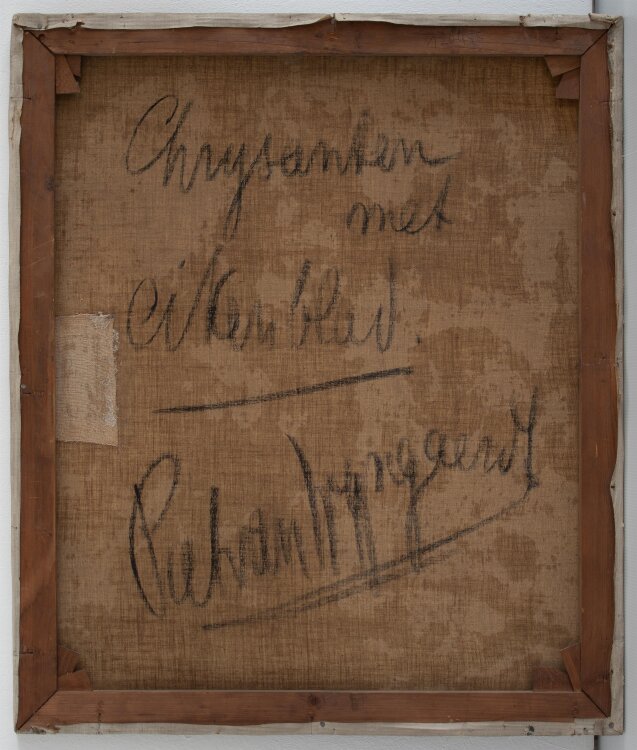 Chrysanten
met
eikenblad.
Piet van Wyngaerdt